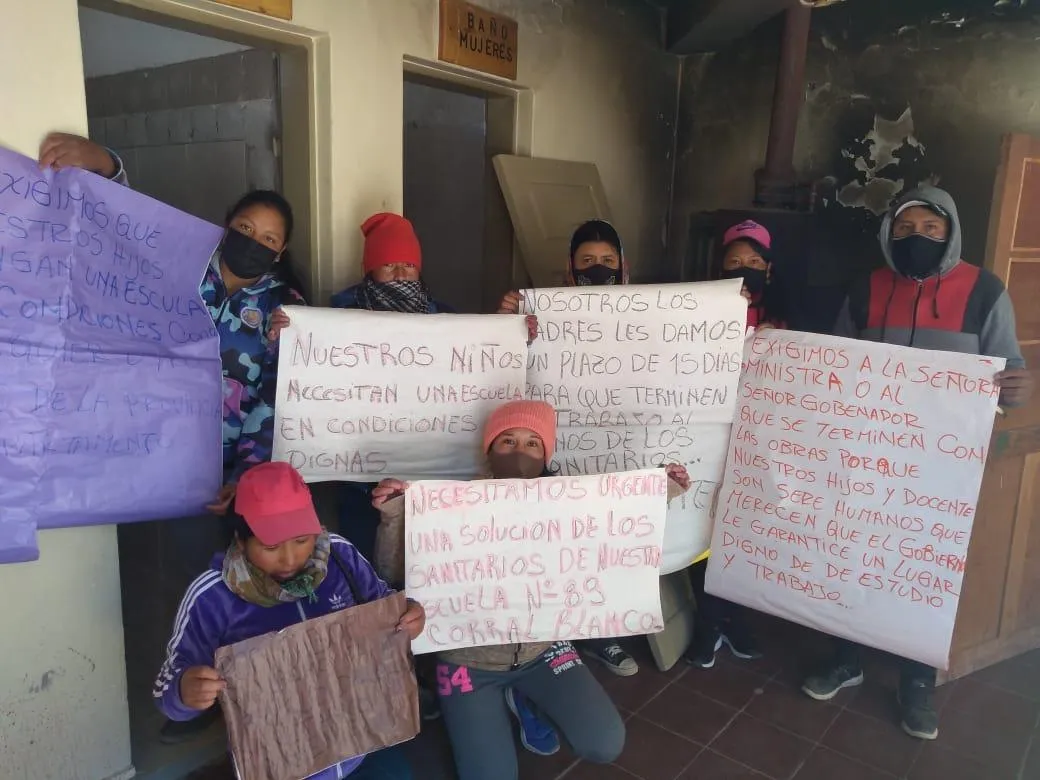 BAÑO
MUJERES
XIGIMOS QUE
ESTROS HIJOS
UNA ESCULA
CONDICIONES
DE LA
NUESTROS NIÑOS
NECESITAN UNA ESCUELA
EN CONDICIONES
DIGNAS
NOSOTROS LOS
ADRES LES DAMOS
UN PLAZO DE 15 DÍAS
PARA QUE TERMINEN
TRABAJO
NOS DE LOS
ANITARIOS...
EXIGIMOS A LA SEÑORA
MINISTRA O AL
SEÑOR GOBENADOR
QUE SE TERMINEN CON
LAS OBRAS PORQUE
NUESTROS HIJOS Y DOCENTE
SON SERE HUMANOS QUE
MERECEN QUE EL GOBIERN
LE GARANTICE UN LUGAR
DIGNO DE DE ESTUDIO
Y TRABAJO...
NECESITAMOS URGENTE
UNA SOLUCION DE LOS
SANITARIOS DE NUESTRA
ESCUELA Nº 89
CORRAL BLANCO
adidas
54
SPRINT